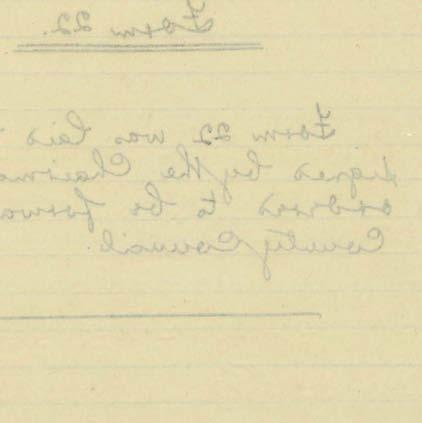 Form 22.
Form 22 was laid
signed by the Chairma
ordered to be forwa
County Council.